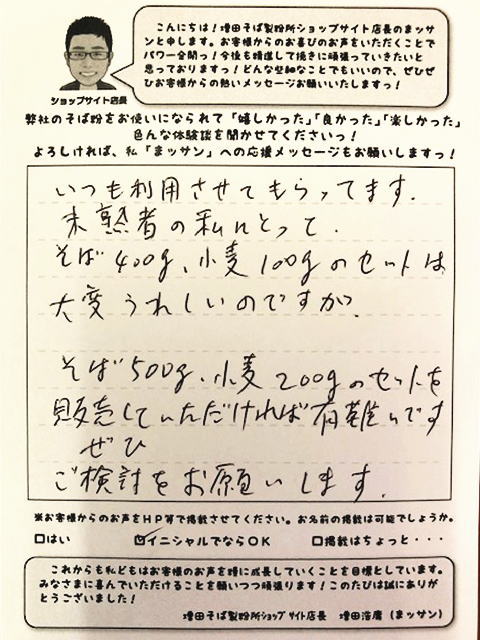 こんにちは！増田そば製粉所ショップサイト店長のまッサ
ンと申します。お客様からのお喜びのお声をいただくことで
パワー全開っ！今後も精進して挽きに頑張っていきたいと
思っておりますっ！どんな些細なことでもいいので、ぜひぜ
ひお客様からの熱いメッセージお願いいたしますっ！
ショップサイト店長
弊社のそば粉をお使いになられて「嬉しかった」「良かった」「楽しかった」
色んな体験談を聞かせてくださいっ！
よろしければ、私「まッサン」への応援メッセージもお願いしますっ！
いつも利用させてもらってます.
未熟者の私にとって.
そば400g、小麦100gのセットは
大変うれしいのですが、
そば500g、小麦200gのセットを
販売していただければ有難いです
ぜひ
ご検討をお願いします.
※お客様からのお声をHP等で掲載させてください。お名前の掲載は可能でしょうか。
□はい ☑イニシャルでならOK □掲載はちょっと・・・
これからも私どもはお客様のお声を糧に成長していくことを目標としています。
みなさまに喜んでいただけることを願いつつ頑張ります！このたびは誠にありが
とうございました！
増田そば製粉所ショップサイト店長 増田浩庸（まッサン）